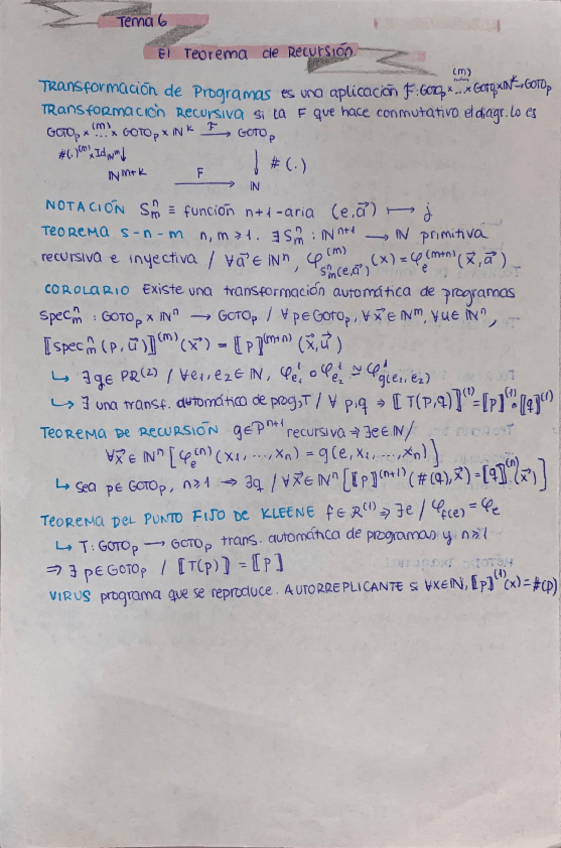 Tema 6
El Teorema de Recursión
TRANSFORMACIÓN DE PROGRAMAS es una aplicación F: GOTOₚ × .^(m). × GOTOₚ × ℕᵏ → GOTOₚ
TRANSFORMACIÓN RECURSIVA si la F que hace conmutativo el diagr. lo es
GOTOₚ × .^(m). × GOTOₚ × ℕᵏ —F→ GOTOₚ
#(.)^(m) × Id ↓ ↓ #(.)
ℕ^(m+k) —F→ ℕ
NOTACIÓN Sₘⁿ ≡ función n+1-aria (e, a⃗) ⟼ j
TEOREMA s-n-m n, m ≥ 1. ∃ Sₘⁿ : ℕⁿ⁺¹ → ℕ primitiva
recursiva e inyectiva / ∀a⃗ ∈ ℕⁿ, φ^(m)_{Sₘⁿ(e,a⃗)} (x) = φₑ^(m+n) (x⃗, a⃗)
COROLARIO Existe una transformación automática de programas
specₘⁿ : GOTOₚ × ℕⁿ → GOTOₚ / ∀p ∈ GOTOₚ, ∀x⃗ ∈ ℕᵐ, ∀u⃗ ∈ ℕⁿ,
⟦specₘⁿ (p, u⃗)⟧^(m) (x⃗) = ⟦p⟧^(m+n) (x⃗, u⃗)
↳ ∃ g ∈ PR^(2) / ∀e₁, e₂ ∈ ℕ, φ¹_{e₁} ∘ φ¹_{e₂} ≃ φ¹_{g(e₁, e₂)}
↳ ∃ una transf. automática de prog, T / ∀ p, q ⇒ ⟦T(p,q)⟧^(1) = ⟦p⟧^(1) ∘ ⟦q⟧^(1)
TEOREMA DE RECURSIÓN g ∈ Pⁿ⁺¹ recursiva ⇒ ∃e ∈ ℕ /
∀x⃗ ∈ ℕⁿ [φₑ^(n) (x₁, ..., xₙ) = g(e, x₁, ..., xₙ)]
↳ Sea p ∈ GOTOₚ, n ≥ 1 ⇒ ∃q / ∀x⃗ ∈ ℕⁿ [⟦p⟧^(n+1) (#(q), x⃗) = ⟦q⟧^(n) (x⃗)]
TEOREMA DEL PUNTO FIJO DE KLEENE f ∈ R^(1) ⇒ ∃e / φ_{f(e)} = φₑ
↳ T: GOTOₚ → GOTOₚ trans. automática de programas y n ≥ 1
⇒ ∃ p ∈ GOTOₚ / ⟦T(p)⟧ = ⟦p⟧
VIRUS programa que se reproduce. AUTORREPLICANTE si ∀x ∈ ℕ, ⟦p⟧^(1) (x) = #(p)